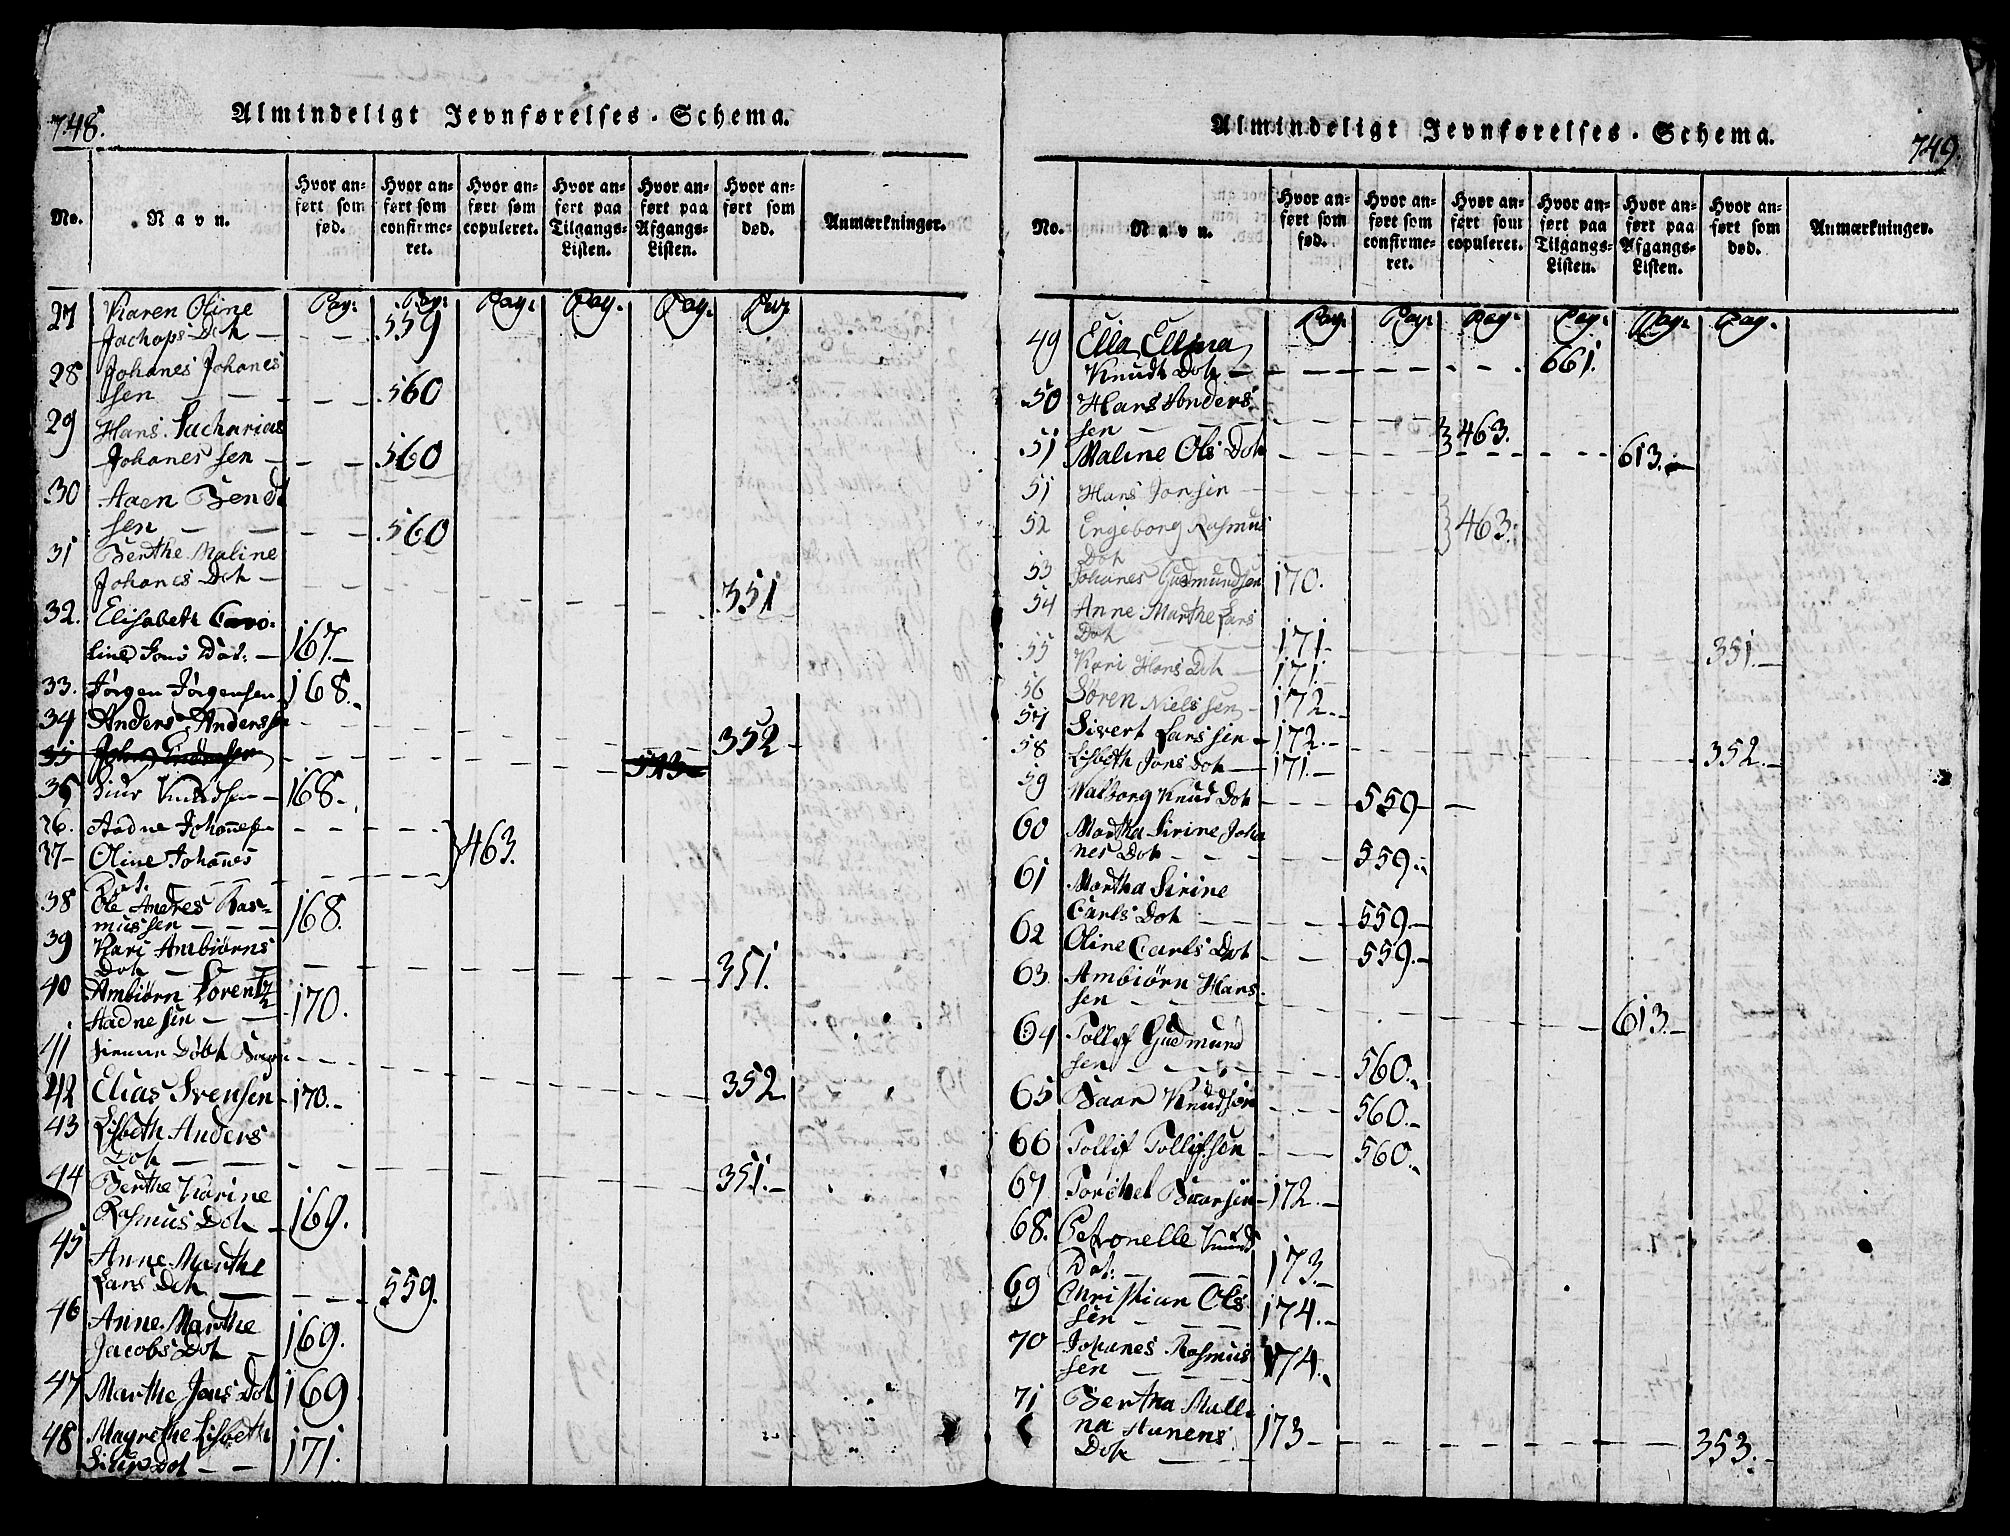 748.
Almindeligt Jevnførelses-Schema.
No.
Navn.
Hvor anført som fød.
Hvor anført som confirmeret.
Hvor anført som copuleret.
Hvor anført paa Tilgangs-Listen.
Hvor anført paa Afgangs-Listen.
Hvor anført som død.
Anmærkninger.
Pag: Pag: Pag: Pag: Pag: Pag:
27 Karen Oline
Jachops Dok — 559
28 Johanes Johanes
sen — 560
29 Hans Sacharias
Johanes sen — 560
30 Aaen Bendt
sen — 560
31 Berthe Maline
Johanes Dok — 351
32. Elisabeth Caro:
line Jons Dat: — 167.—
33. Jørgen Jørgensen 168.
34 Anders Andersse 352
35 543
35 Siur Knudsen — 168.
36. Aadne Johannesen
37— Oline Johannes } 463.
Dat.
38 Ole Andres Ras=
mussen — 168.
39 Kari Ambiørns
Dok — 351.
40 Ambiørn Lorentz
Aadnesen — 170.
41 Døbt 352
42 Elias Svensen 170.—
43 Lisbeth Anders
Dok — 351.—
44 Berthe Karine
Rasmus Dok 169.
45 Anne Marthe
Lars Dok — 559.
46 Anne Marthe
Jacobs Dok — 169.
47 Marthe Jons Dok 169
48 Magrethe Lisbeth
Siurs Dok — 171.
Almindeligt Jevnførelses-Schema.
749.
No.
Navn.
Hvor anført som fød.
Hvor anført som confirmeret.
Hvor anført som copuleret.
Hvor anført paa Tilgangs-Listen.
Hvor anført paa Afgangs-Listen.
Hvor anført som død.
Anmærkninger.
Pag: Pag: Pag: Pag: Pag: Pag.
49 Ella Ellina
Knudt Dok — 661.
50 Hans Anders
sen — } 463.
51 Maline Ols Dok 613.—
51 Hans Jonsen —
52 Engeborg Rasmus } 463.
Dok
53 Johanes Gudmundsen 170.
54 Anne Marthe Lars
Dok — 171— 351.—
55 Kari Hans Dok — 171.
56 Søren Nielssen — 172.—
57 Sivert Larssen — 172.— 352.—
58 Lisbeth Jons Dok — 171.—
59 Walborg Knud Dok 559—
60 Martha Sirine Joha
nes Dok — 559.—
61 Martha Sirine
Carls Dok — 559—
62 Oline Carls Dok 559.—
63 Ambiørn Hans
sen — 613.—
64 Tollef Gudmund
sen — 560.
65 Baar Knudsen 560.—
66 Tollif Tollifsen 560.
67 Torchel Baarsen 172.—
68. Petronelle Knuds
Dat: — 173.—
69 Christian Ols
sen — 174.—
70 Johanes Rasmus
sen — 174.
71 Bertha Malli
na Hanens 173— 353.—
Dok